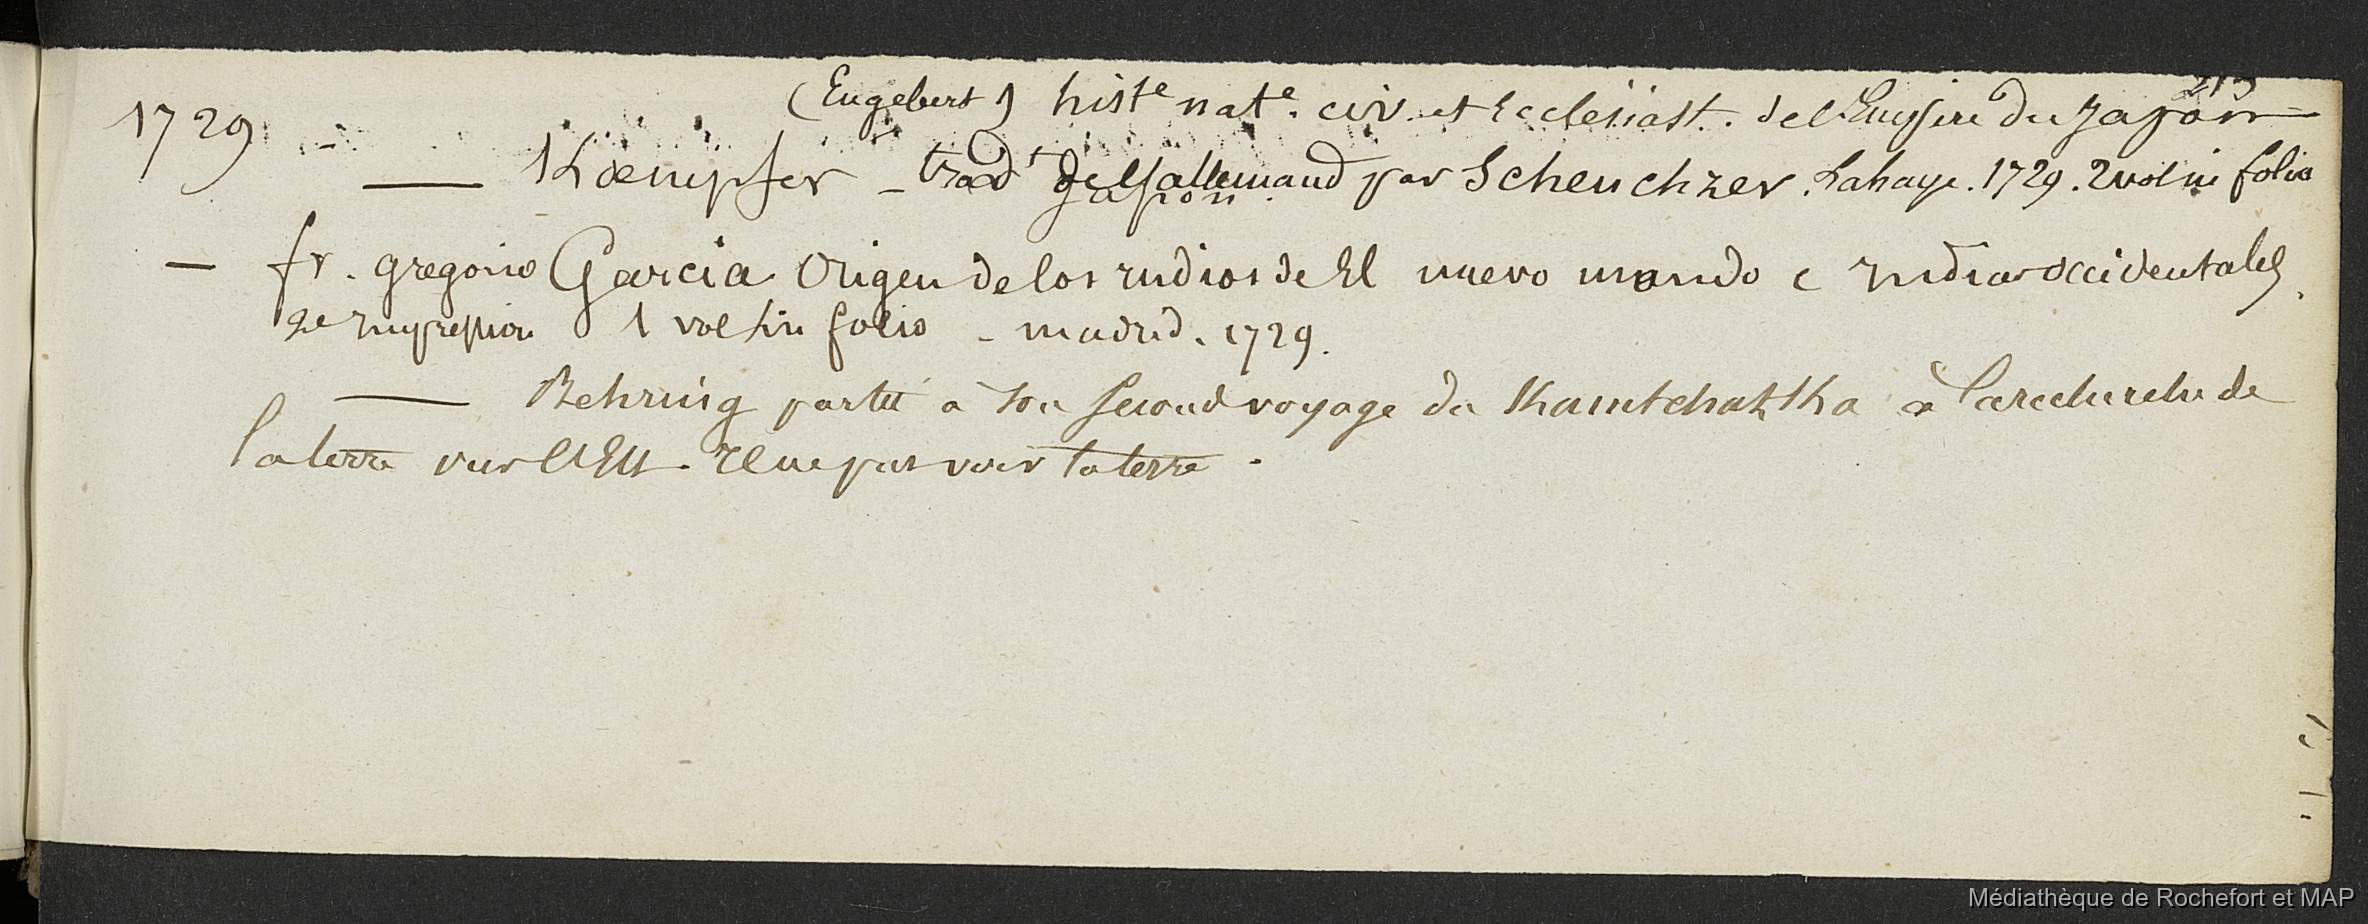 213
(Engebert) histe nate. civ. et Ecclesiast. de l'Empire du Japon
1729 - — Kœmpfer - tradt de l'allemand par Scheuchzer. Lahaye. 1729. 2 vol in folio
Japon.
— fr. gregorio Garcia Origen de los Indios de El nuevo mondo e Indias occidentales.
2e Impression 1 vol in folio - madrid. 1729.
— Behring partit à son second voyage du Kamtchatka à la recherche de
la terre vers l'Est. Il ne put voir la terre.
Médiathèque de Rochefort et MAP